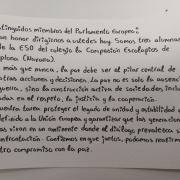 stinguidos miembros del Parlamento Europeo:
an honor dirigirnos a ustedes hoy. Somos tres alumnas
de la ESO del colegio la Compasión Escolapios de
plona (Navarra).
más que nunca, la paz debe ser el pilar central de
stras acciones y decisiones. La paz no es solo la ausenc
guerra, sino la construcción activa de sociedades inclu
sadas en el respeto, la justicia y la cooperación.
uestra tarea proteger el legado de unidad y estabilidad
definido a la Unión Europea y garantizar que las generacion
as vivan en un continente donde el diálogo prevalezca
onfrontación. Confiamos en que juntos, podamos reafirm
stro compromiso con la paz.